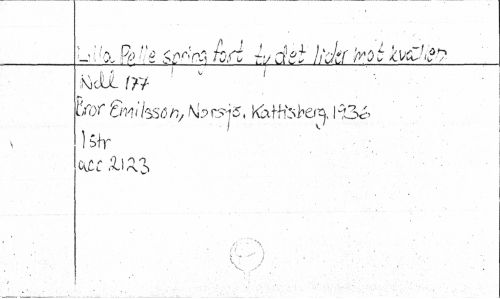 Lilla Pelle spring fort ty det lider mot kvällen
Ndl 177
Bror Emilsson, Norsjö. Kattisberg. 1936
1 str
acc 2123